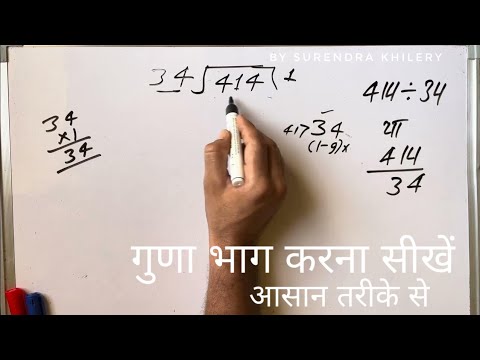 BY SURENDRA KHILERY
34√414(1
414÷34
या
414
34
34
×1
34
417>34
(1-9)×
गुणा भाग करना सीखें
आसान तरीके से